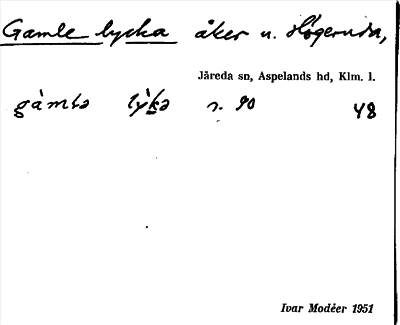 Gamle lycka åker u. Högeruda,
Järeda sn, Aspelands hd, Klm. l.
gàmlə lỳkə s. 90 48
Ivar Modéer 1951